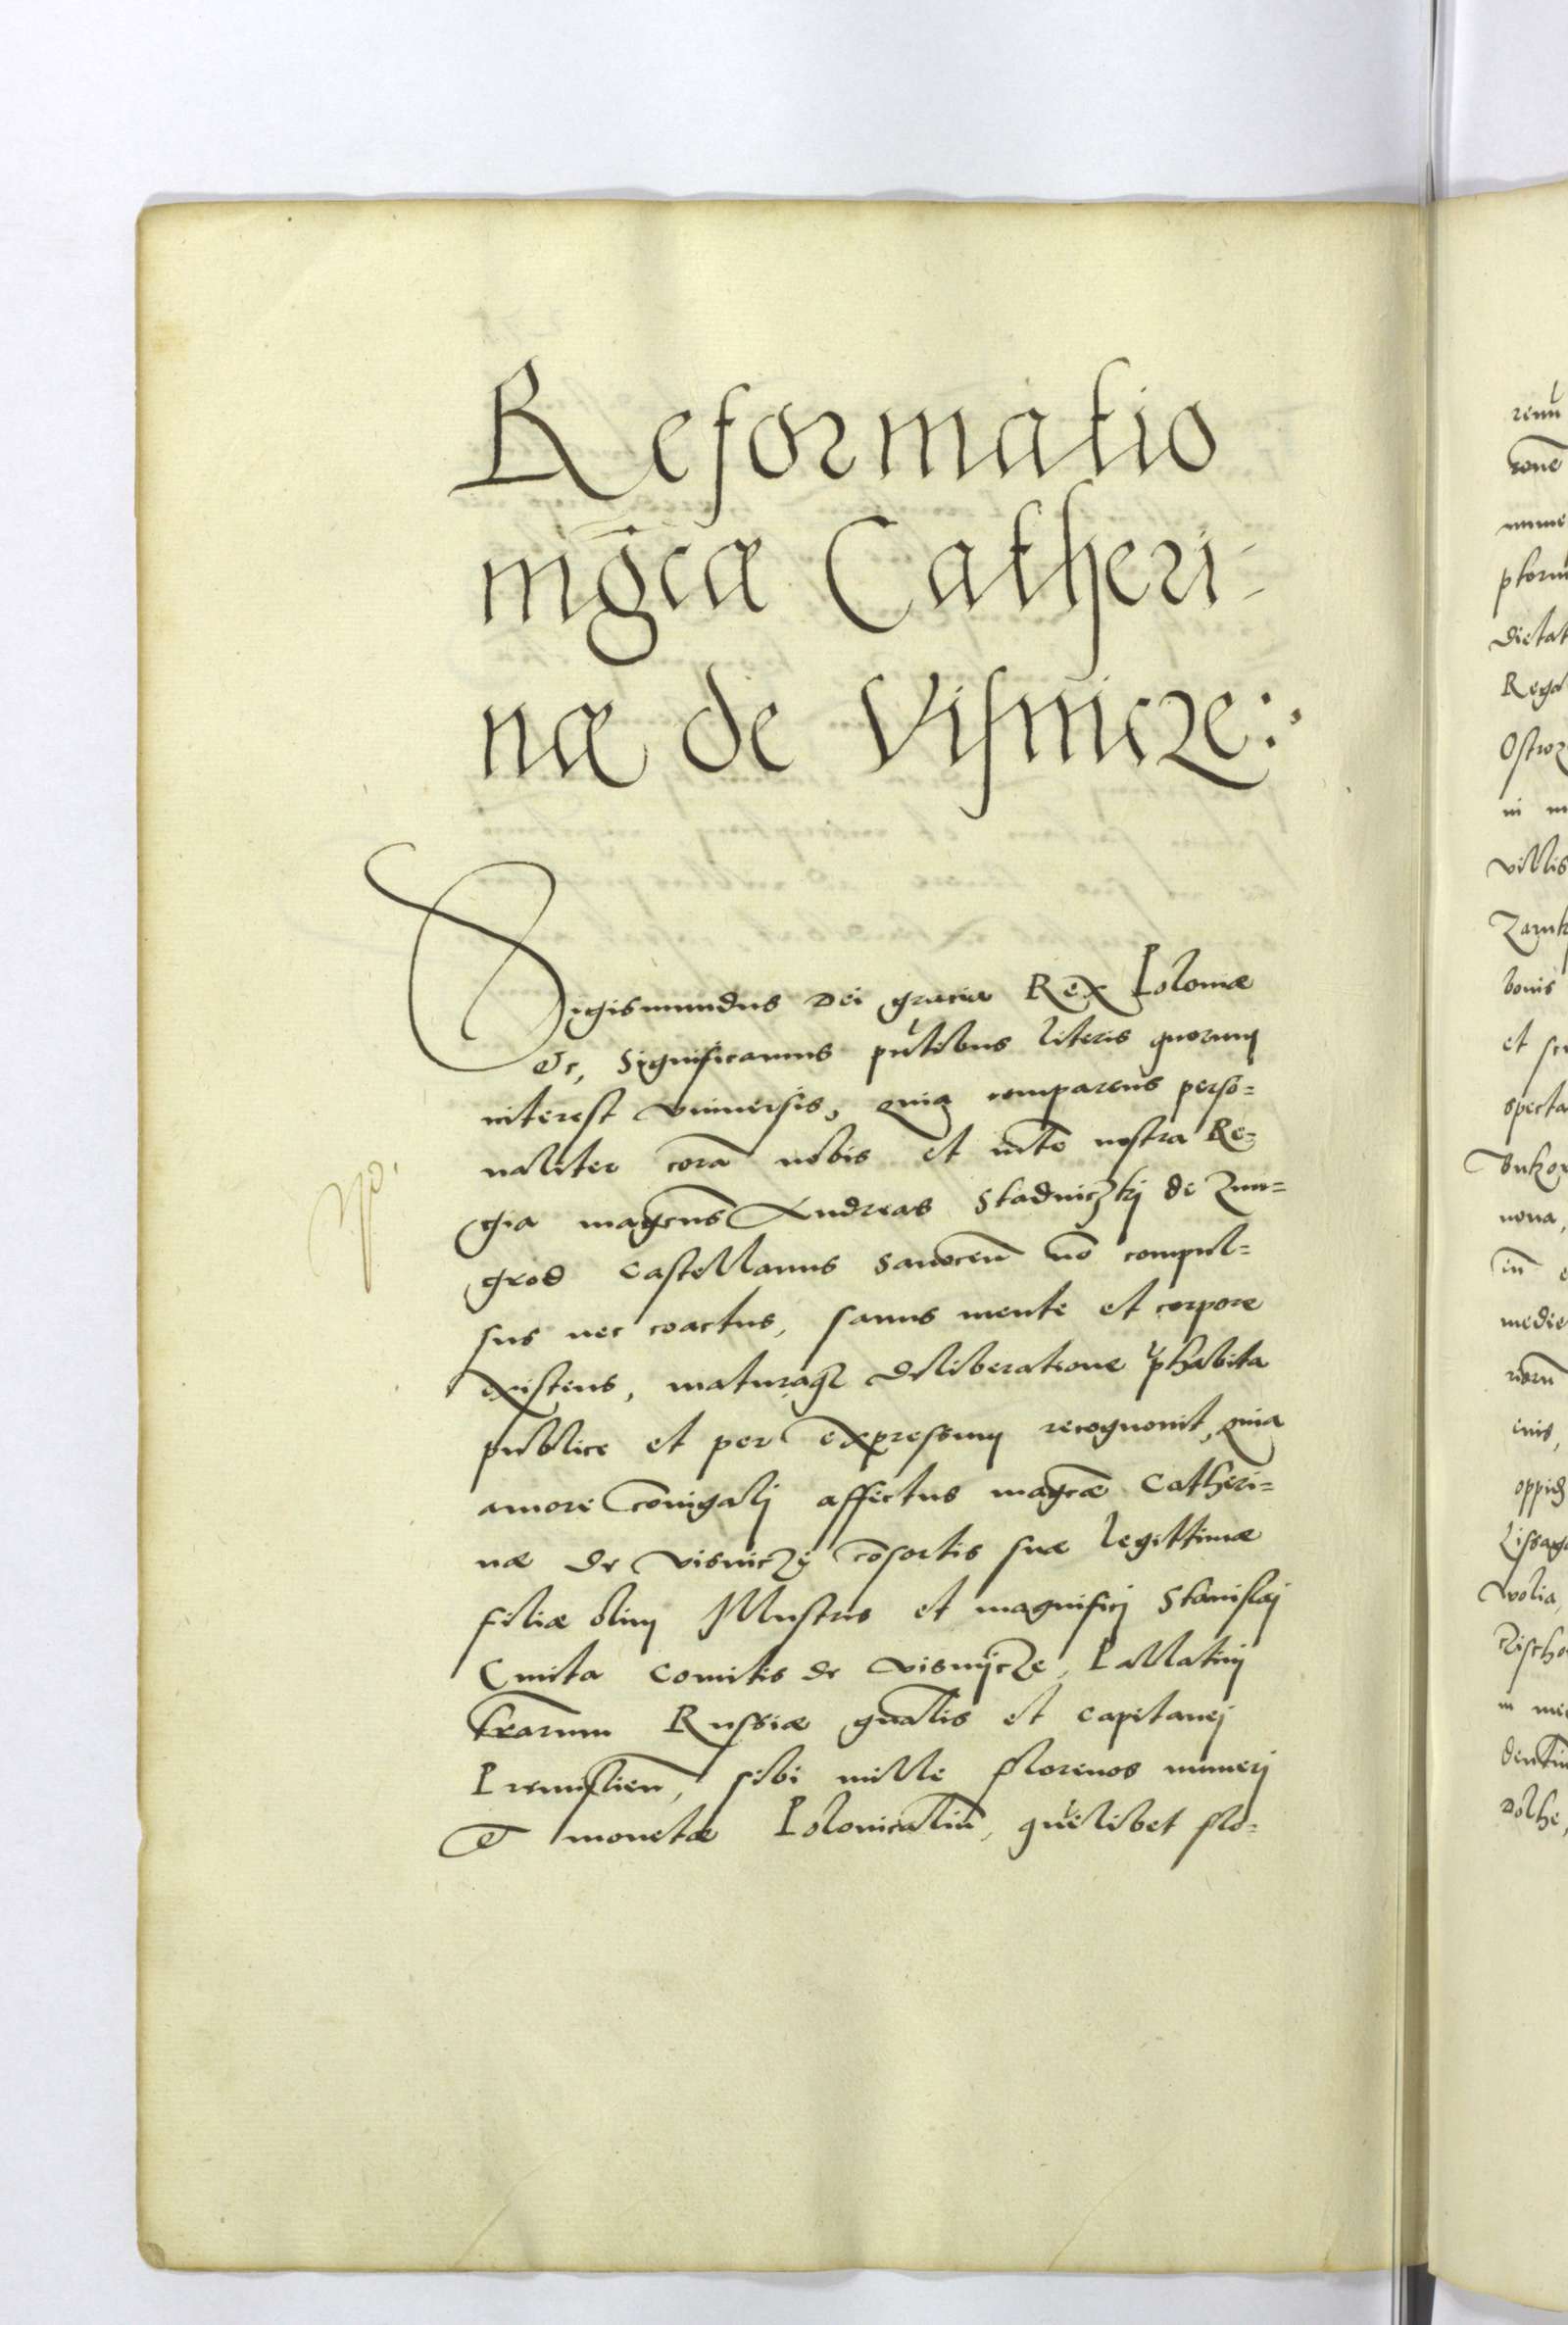 Reformatio
mgcæ Catheri-
næ de Visnicze:
Sigismundus Dei gracia Rex Poloniæ
etc, Significamus pntibus literis quorum
interest vniuersis, quia comparens perso=
naliter corã nobis et mte nostra Re=
gia magcus Andreas Stadniczkj de Zmi=
grod Castellanus Sanocen no compul=
sus nec coactus, sanus mente et corpore
existens, maturaqz deliberatione phabita
publice et per expressum recognouit, quia
amore coniugalj affectus magcæ Catheri=
næ de visniczy cosortis suæ legittimæ
filiæ olim Illustris et magnificj Stanislaj
Cmita Comitis de visnijcze, Pallatinj
terarum Russiæ gnalis et Capitanej
Premislien, sibi mille florenos numerj
et monetæ Polonicaliu, quelibet flo=
renu
rone
nume
ptoru
dictat
Rega
Ostroz
in m
villis
Zamk
bonis
et
specta
noua,
in e
medie
enis,
oppid
Lissag
wolia,
in me
Dolhe,